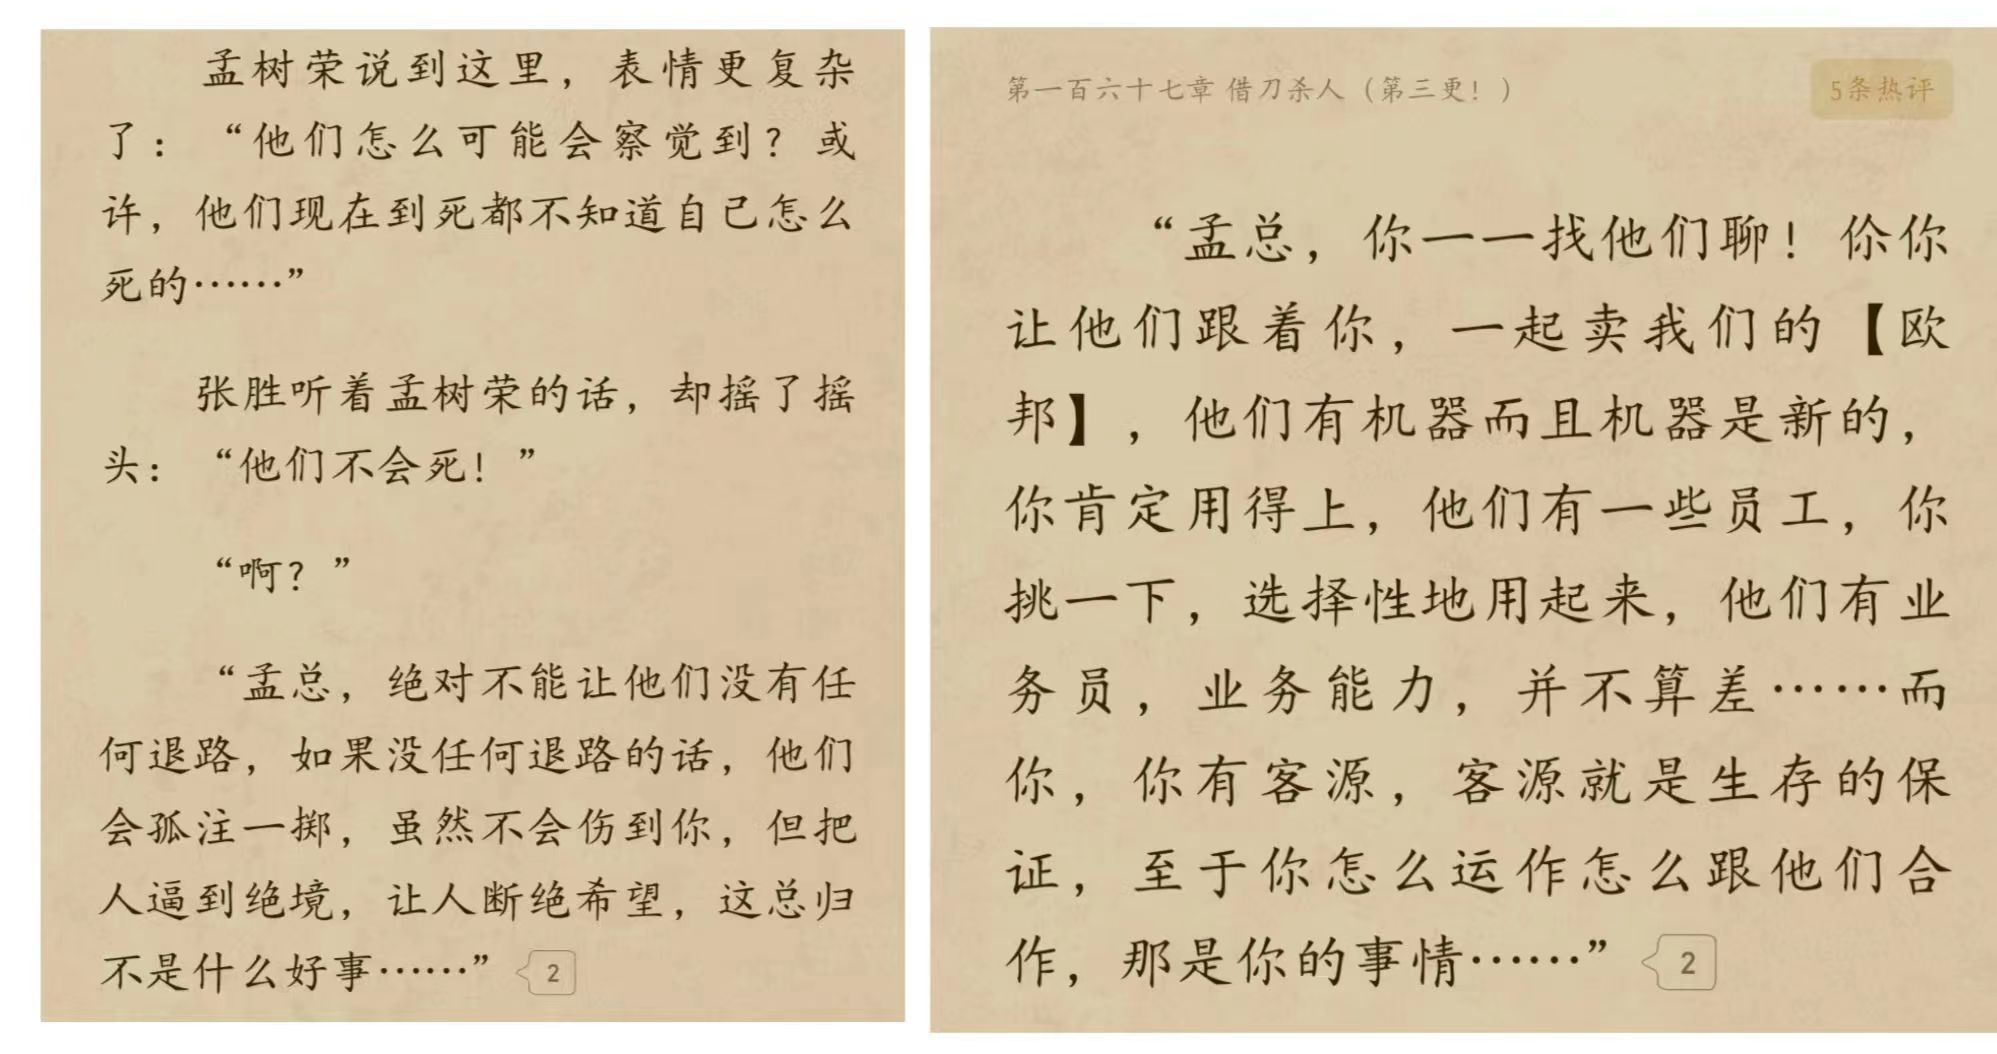 孟树荣说到这里，表情更复杂
了：“他们怎么可能会察觉到？或
许，他们现在到死都不知道自己怎么
死的……”
张胜听着孟树荣的话，却摇了摇
头：“他们不会死！”
“啊？”
“孟总，绝对不能让他们没有任
何退路，如果没任何退路的话，他们
会孤注一掷，虽然不会伤到你，但把
人逼到绝境，让人断绝希望，这总归
不是什么好事……” 2
第一百六十七章 借刀杀人（第三更！）
5条热评
“孟总，你一一找他们聊！伱你
让他们跟着你，一起卖我们的【欧
邦】，他们有机器而且机器是新的，
你肯定用得上，他们有一些员工，你
挑一下，选择性地用起来，他们有业
务员，业务能力，并不算差……而
你，你有客源，客源就是生存的保
证，至于你怎么运作怎么跟他们合
作，那是你的事情……” 2